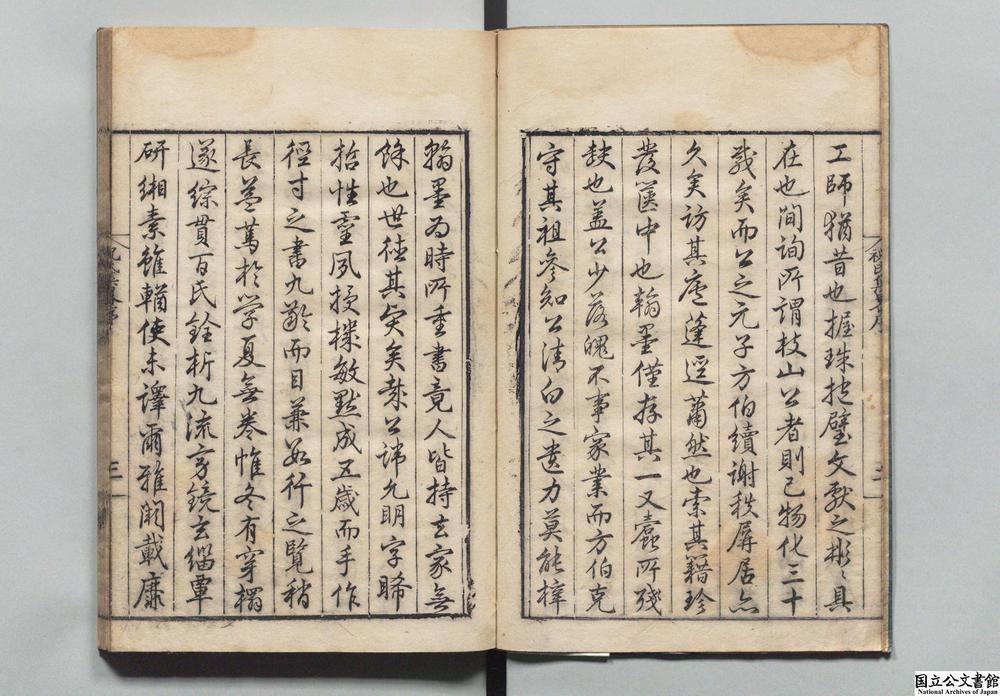 工師猶昔也握珠抱璧文獻之彬〻具
在也間詢所謂枝山公者則已物化三十
載矣而公之元子方伯續謝秩屏居亦
久矣訪其廬蓬逕蕭然也索其籍珍
襲篋中也翰墨僅存其一又蠹所殘
缺也蓋公少落魄不事家業而方伯克
守其祖參知公清白之遺力莫能梓
翰墨為時所重書竟人皆持去家無
餘也世徒其㷼矣蓻公諱允明字睎
哲性靈夙授機敏默成五歲而手作
徑寸之書九齡而目兼數行之覽稍
長益篤於學夏無卷帷冬有穿榻
遂綜貫百氏銓析九流旁鏡玄緇覃
研緗素雖輶使未譯爾雅闕載靡
三
国立公文書館
National Archives of Japan